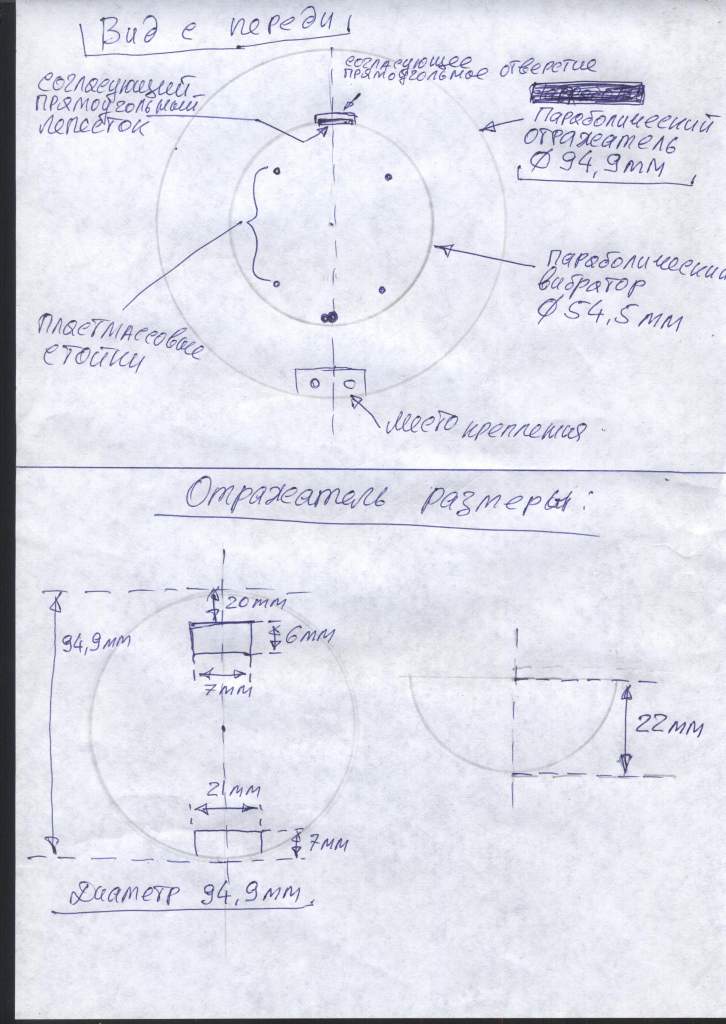 Вид с переди
согласующее
прямоугольное отверстие
согласующий
прямоугольный
лепесток
Параболический
отражатель
Ø 94,9мм
Параболический
вибратор
Ø 54,5мм
пластмассовые
стойки
место крепления
Отражатель размеры:
20мм
94,9мм
6мм
7мм
22мм
21мм
7мм
Диаметр 94,9мм.